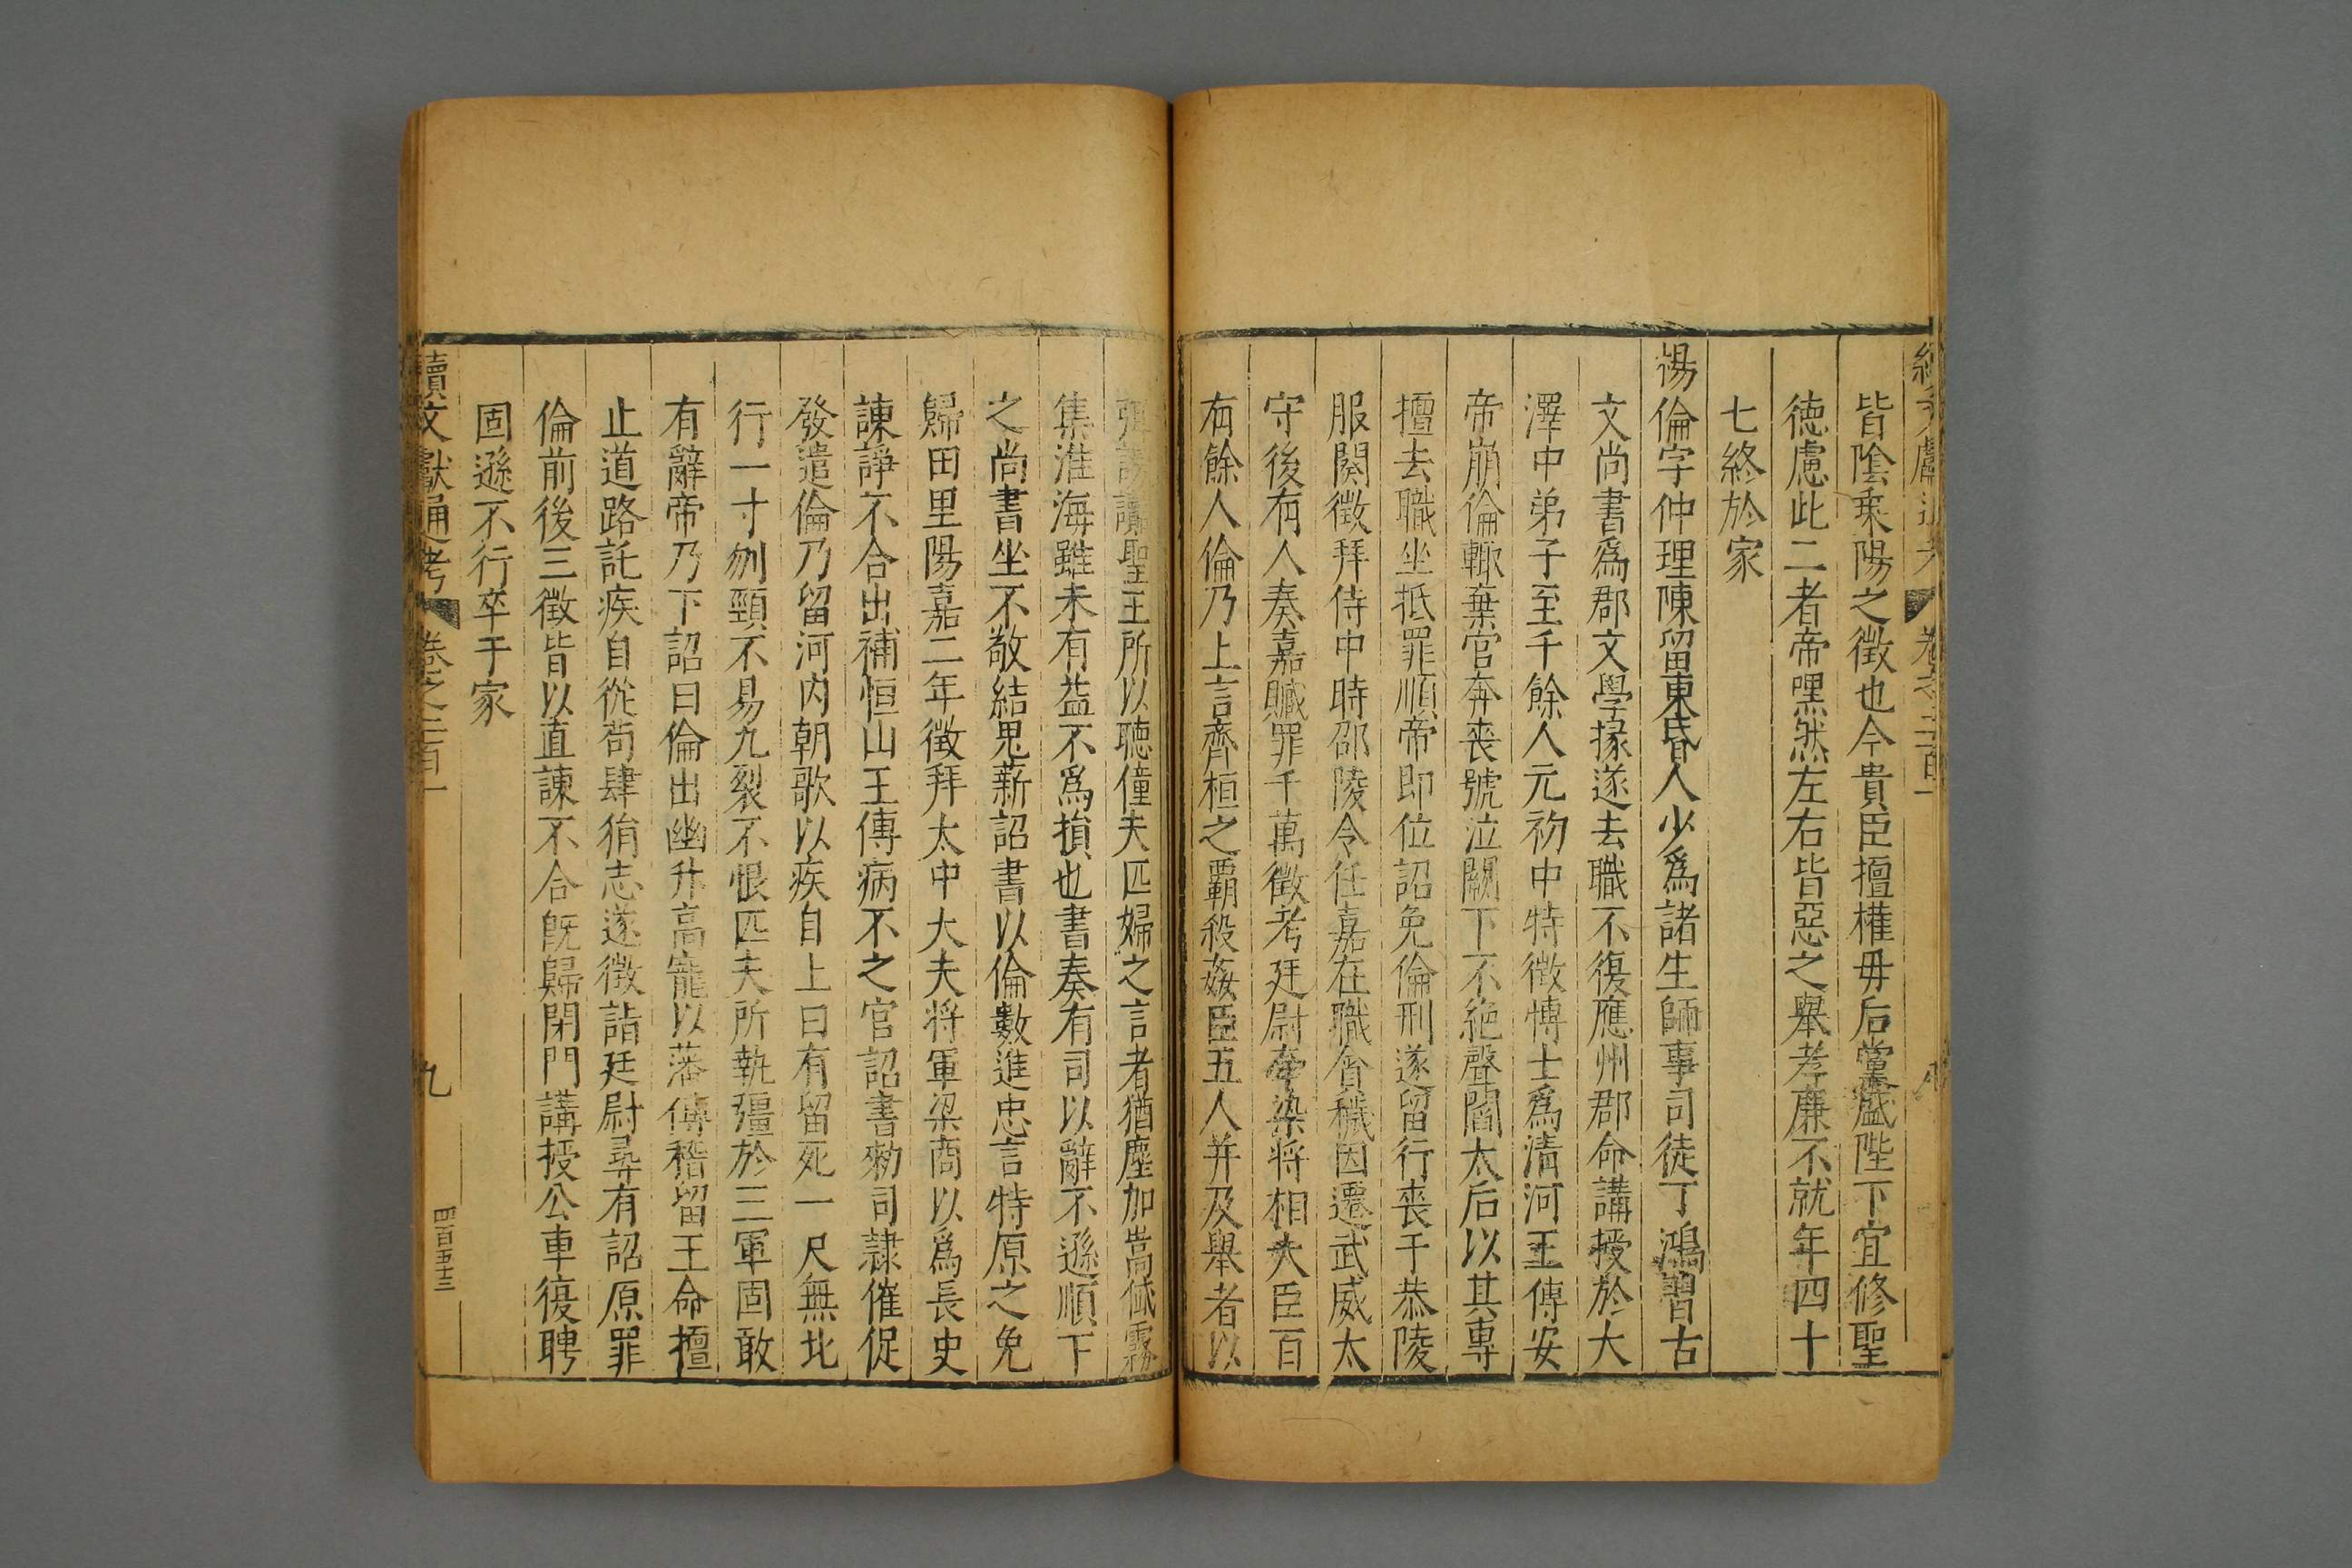 皆陰乗陽之徴也今貴臣擅權毋后黨盛陛下宜修聖
徳慮此二者帝嘿然左右皆惡之舉孝廉不就年四十
七終於家
楊倫字仲理陳留東昏人少爲諸生師事司徒丁鴻習古
文尚書爲郡文學掾遂去職不復應州郡命講授於大
澤中弟子至千餘人元初中特徴博士爲清河王傅安
帝崩倫輙棄官奔喪號泣闕下不絶聲閻太后以其專
擅去職坐抵罪順帝即位詔免倫刑遂留行喪于恭陵
服闋徴拜侍中時邵陵令任嘉在職貪穢因遷武威太
守後有人奏嘉贓罪千萬徴考廷尉牽染將相大臣百
有餘人倫乃上言齊桓之霸殺姦臣五人并及舉者以
讀聖王所以聴僮夫匹婦之言者猶塵加嵩岱霧
集淮海雖未有益不爲損也書奏有司以辭不遜順下
之尚書坐不敬結鬼薪詔書以倫數進忠言特原之免
歸田里陽嘉二年徴拜太中大夫將軍梁商以爲長史
諫諍不合出補恒山王傅病不之官詔書勑司隷催促
發遣倫乃留河内朝歌以疾自上曰有留死一尺無北
行一寸刎頸不易九裂不恨匹夫所執彊於三軍固敢
有辭帝乃下詔曰倫出幽升高寵以藩傅稽留王命擅
止道路託疾自從苟肆狷志遂徴詣廷尉尋有詔原罪
倫前後三徴皆以直諫不合既歸閉門講授公車復聘
固遜不行卒于家
續文獻通考 卷之二百一 九 四百五十三